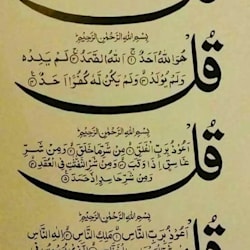 بِسْمِ اللهِ الرَّحْمٰنِ الرَّحِيْمِ
قُلْ
هُوَ اللهُ اَحَدٌ اَللهُ الصَّمَدُ لَمْ يَلِدْ
وَلَمْ يُوْلَدْ وَلَمْ يَكُنْ لَّهٗ كُفُوًا اَحَدٌ
بِسْمِ اللهِ الرَّحْمٰنِ الرَّحِيْمِ
قُلْ
اَعُوْذُ بِرَبِّ الْفَلَقِ مِنْ شَرِّ مَا خَلَقَ وَمِنْ شَرِّ
غَاسِقٍ اِذَا وَقَبَ وَمِنْ شَرِّ النَّفّٰثٰتِ فِي الْعُقَدِ
وَمِنْ شَرِّ حَاسِدٍ اِذَا حَسَدَ
بِسْمِ اللهِ الرَّحْمٰنِ الرَّحِيْمِ
قُلْ
اَعُوْذُ بِرَبِّ النَّاسِ مَلِكِ النَّاسِ اِلٰهِ النَّاسِ